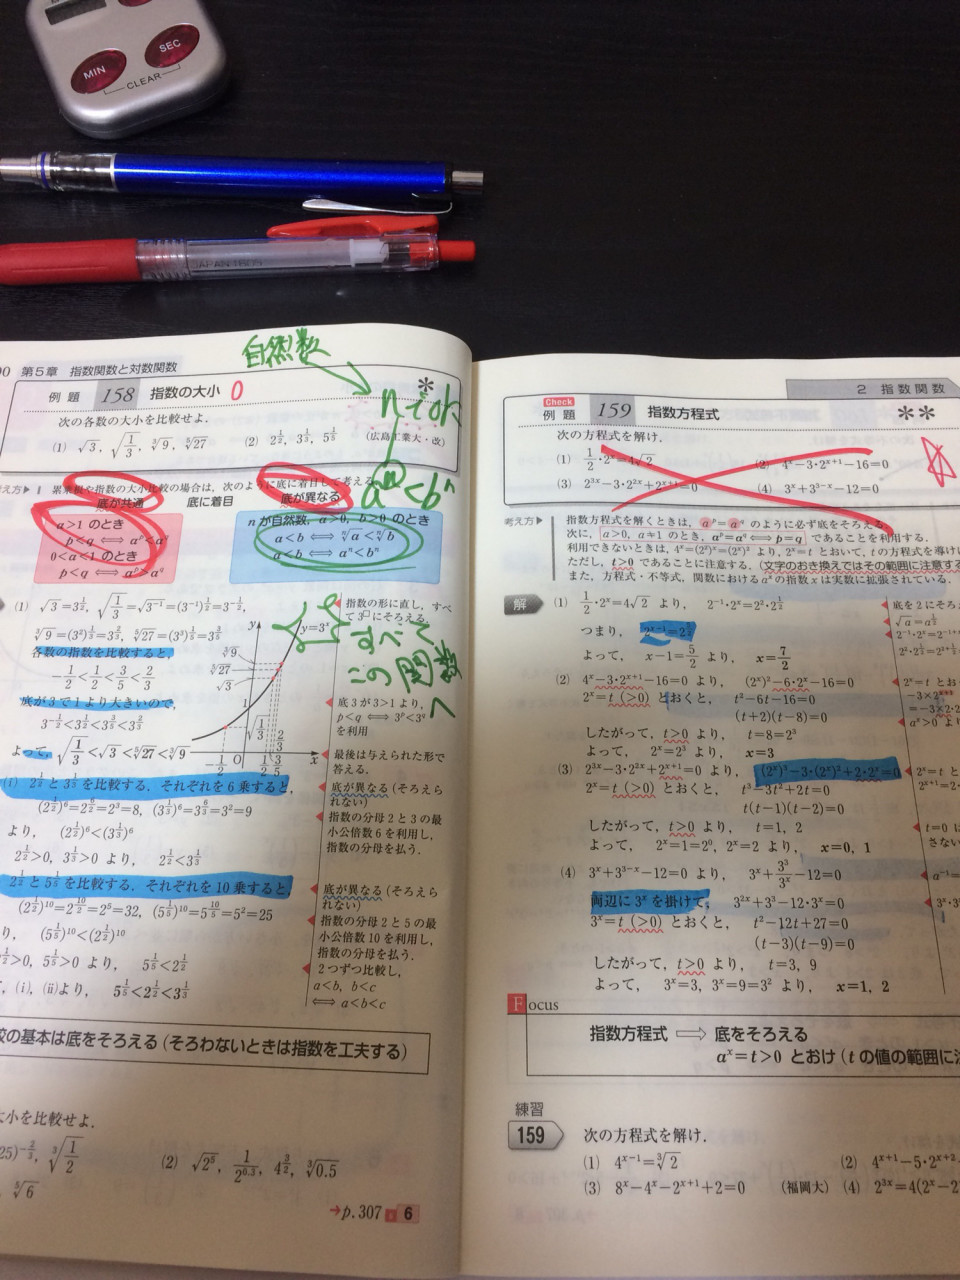 MIN
SEC
CLEAR
自然数
第5章 指数関数と対数関数
例題 158 指数の大小 0
*
nでok
次の各数の大小を比較せよ.
(1) √3, √(1/3), ∛9, ⁵√27 (2) 2^(1/2), 3^(1/3), 5^(1/5) (広島工業大・改)
考え方▶ 累乗根や指数の大小比較の場合は,次のように底に着目して考える.
底が共通 底に着目 底が異なる
a^n<b^n
a>1 のとき
p<q ⟺ a^p<a^q
0<a<1 のとき
p<q ⟺ a^p>a^q
nが自然数, a>0, b>0 のとき
a<b ⟺ ⁿ√a<ⁿ√b
a<b ⟺ a^n<b^n
(1) √3=3^(1/2), √(1/3)=√(3^(-1))=(3^(-1))^(1/2)=3^(-1/2),
∛9=(3^2)^(1/3)=3^(2/3), ⁵√27=(3^3)^(1/5)=3^(3/5)
各数の指数を比較すると,
-1/2<1/2<3/5<2/3
底が3で1より大きいので,
3^(-1/2)<3^(1/2)<3^(3/5)<3^(2/3)
よって, √(1/3)<√3<⁵√27<∛9
y y=3^x
∛9
⁵√27
√3
1
√(1/3)
-1/2 O 1/2 3/5 2/3 x
指数の形に直し,すべて3^□にそろえる.
すべて
この関数
へ
底3が3>1より,
p<q ⟺ 3^p<3^q
を利用
最後は与えられた形で
答える.
(i) 2^(1/2)と3^(1/3)を比較する.それぞれを6乗すると,
(2^(1/2))^6=2^(6/2)=2^3=8, (3^(1/3))^6=3^(6/3)=3^2=9
より, (2^(1/2))^6<(3^(1/3))^6
2^(1/2)>0, 3^(1/3)>0 より, 2^(1/2)<3^(1/3)
底が異なる(そろえら
れない)
指数の分母2と3の最
小公倍数6を利用し,
指数の分母を払う.
2^(1/2)と5^(1/5)を比較する.それぞれを10乗すると,
(2^(1/2))^10=2^(10/2)=2^5=32, (5^(1/5))^10=5^(10/5)=5^2=25
り, (5^(1/5))^10<(2^(1/2))^10
>0, 5^(1/5)>0 より, 5^(1/5)<2^(1/2)
, (i), (ii)より, 5^(1/5)<2^(1/2)<3^(1/3)
底が異なる(そろえら
れない)
指数の分母2と5の最
小公倍数10を利用し,
指数の分母を払う.
2つずつ比較し,
a<b, b<c
⟺ a<b<c
較の基本は底をそろえる(そろわないときは指数を工夫する)
大小を比較せよ.
25)^(-2/3), ∛(1/2)
(2) √(2^5), 1/2^(0.3), 4^(3/2), ∛0.5
, ⁵√6
→p.307 6
2 指数関数
Check
例題 159 指数方程式 **
次の方程式を解け.
(1) 1/2・2^x=4√2 (2) 4^x-3・2^(x+1)-16=0
(3) 2^(3x)-3・2^(2x)+2^(x+1)=0 (4) 3^x+3^(3-x)-12=0
考え方▶ 指数方程式を解くときは, a^p=a^q のように必ず底をそろえる.
次に, a>0, a≠1 のとき, a^p=a^q⟺p=q であることを利用する.
利用できないときは, 4^x=(2^2)^x=(2^x)^2 より, 2^x=t とおいて, tの方程式を導け
ただし, t>0 であることに注意する.(文字のおき換えではその範囲に注意する
また,方程式・不等式,関数における a^x の指数 x は実数に拡張されている.
解 (1) 1/2・2^x=4√2 より, 2^(-1)・2^x=2^2・2^(1/2)
つまり, 2^(x-1)=2^(5/2)
よって, x-1=5/2 より, x=7/2
底を2にそろ
√a=a^(1/2)
(2) 4^x-3・2^(x+1)-16=0 より, (2^x)^2-6・2^x-16=0
2^x=t (>0) とおくと, t^2-6t-16=0
(t+2)(t-8)=0
したがって, t>0 より, t=8
よって, 2^x=2^3 より, x=3
2^x=t とお
-3×2^(x+1)
=-3×2・2
a^x>0 より
(3) 2^(3x)-3・2^(2x)+2^(x+1)=0 より, (2^x)^3-3・(2^x)^2+2・2^x=0
2^x=t (>0) とおくと, t^3-3t^2+2t=0
t(t-1)(t-2)=0
したがって, t>0 より, t=1, 2
よって, 2^x=1=2^0, 2^x=2 より, x=0, 1
2^x=t と
2^(x+1)=2・
t=0 は
さない
(4) 3^x+3^(3-x)-12=0 より, 3^x+3^3/3^x-12=0
両辺に3^xを掛けて, 3^(2x)+3^3-12・3^x=0
3^x=t (>0) とおくと, t^2-12t+27=0
(t-3)(t-9)=0
したがって, t>0 より, t=3, 9
よって, 3^x=3, 3^x=9=3^2 より, x=1, 2
Focus
指数方程式 ⟹ 底をそろえる
a^x=t>0 とおけ(tの値の範囲に注
練習
159 次の方程式を解け.
(1) 4^(x-1)=∛2 (2) 4^(x+1)-5・2^(x+2)
(3) 8^x-4^x-2^(x+1)+2=0 (福岡大) (4) 2^(3x)=4(2^x-2